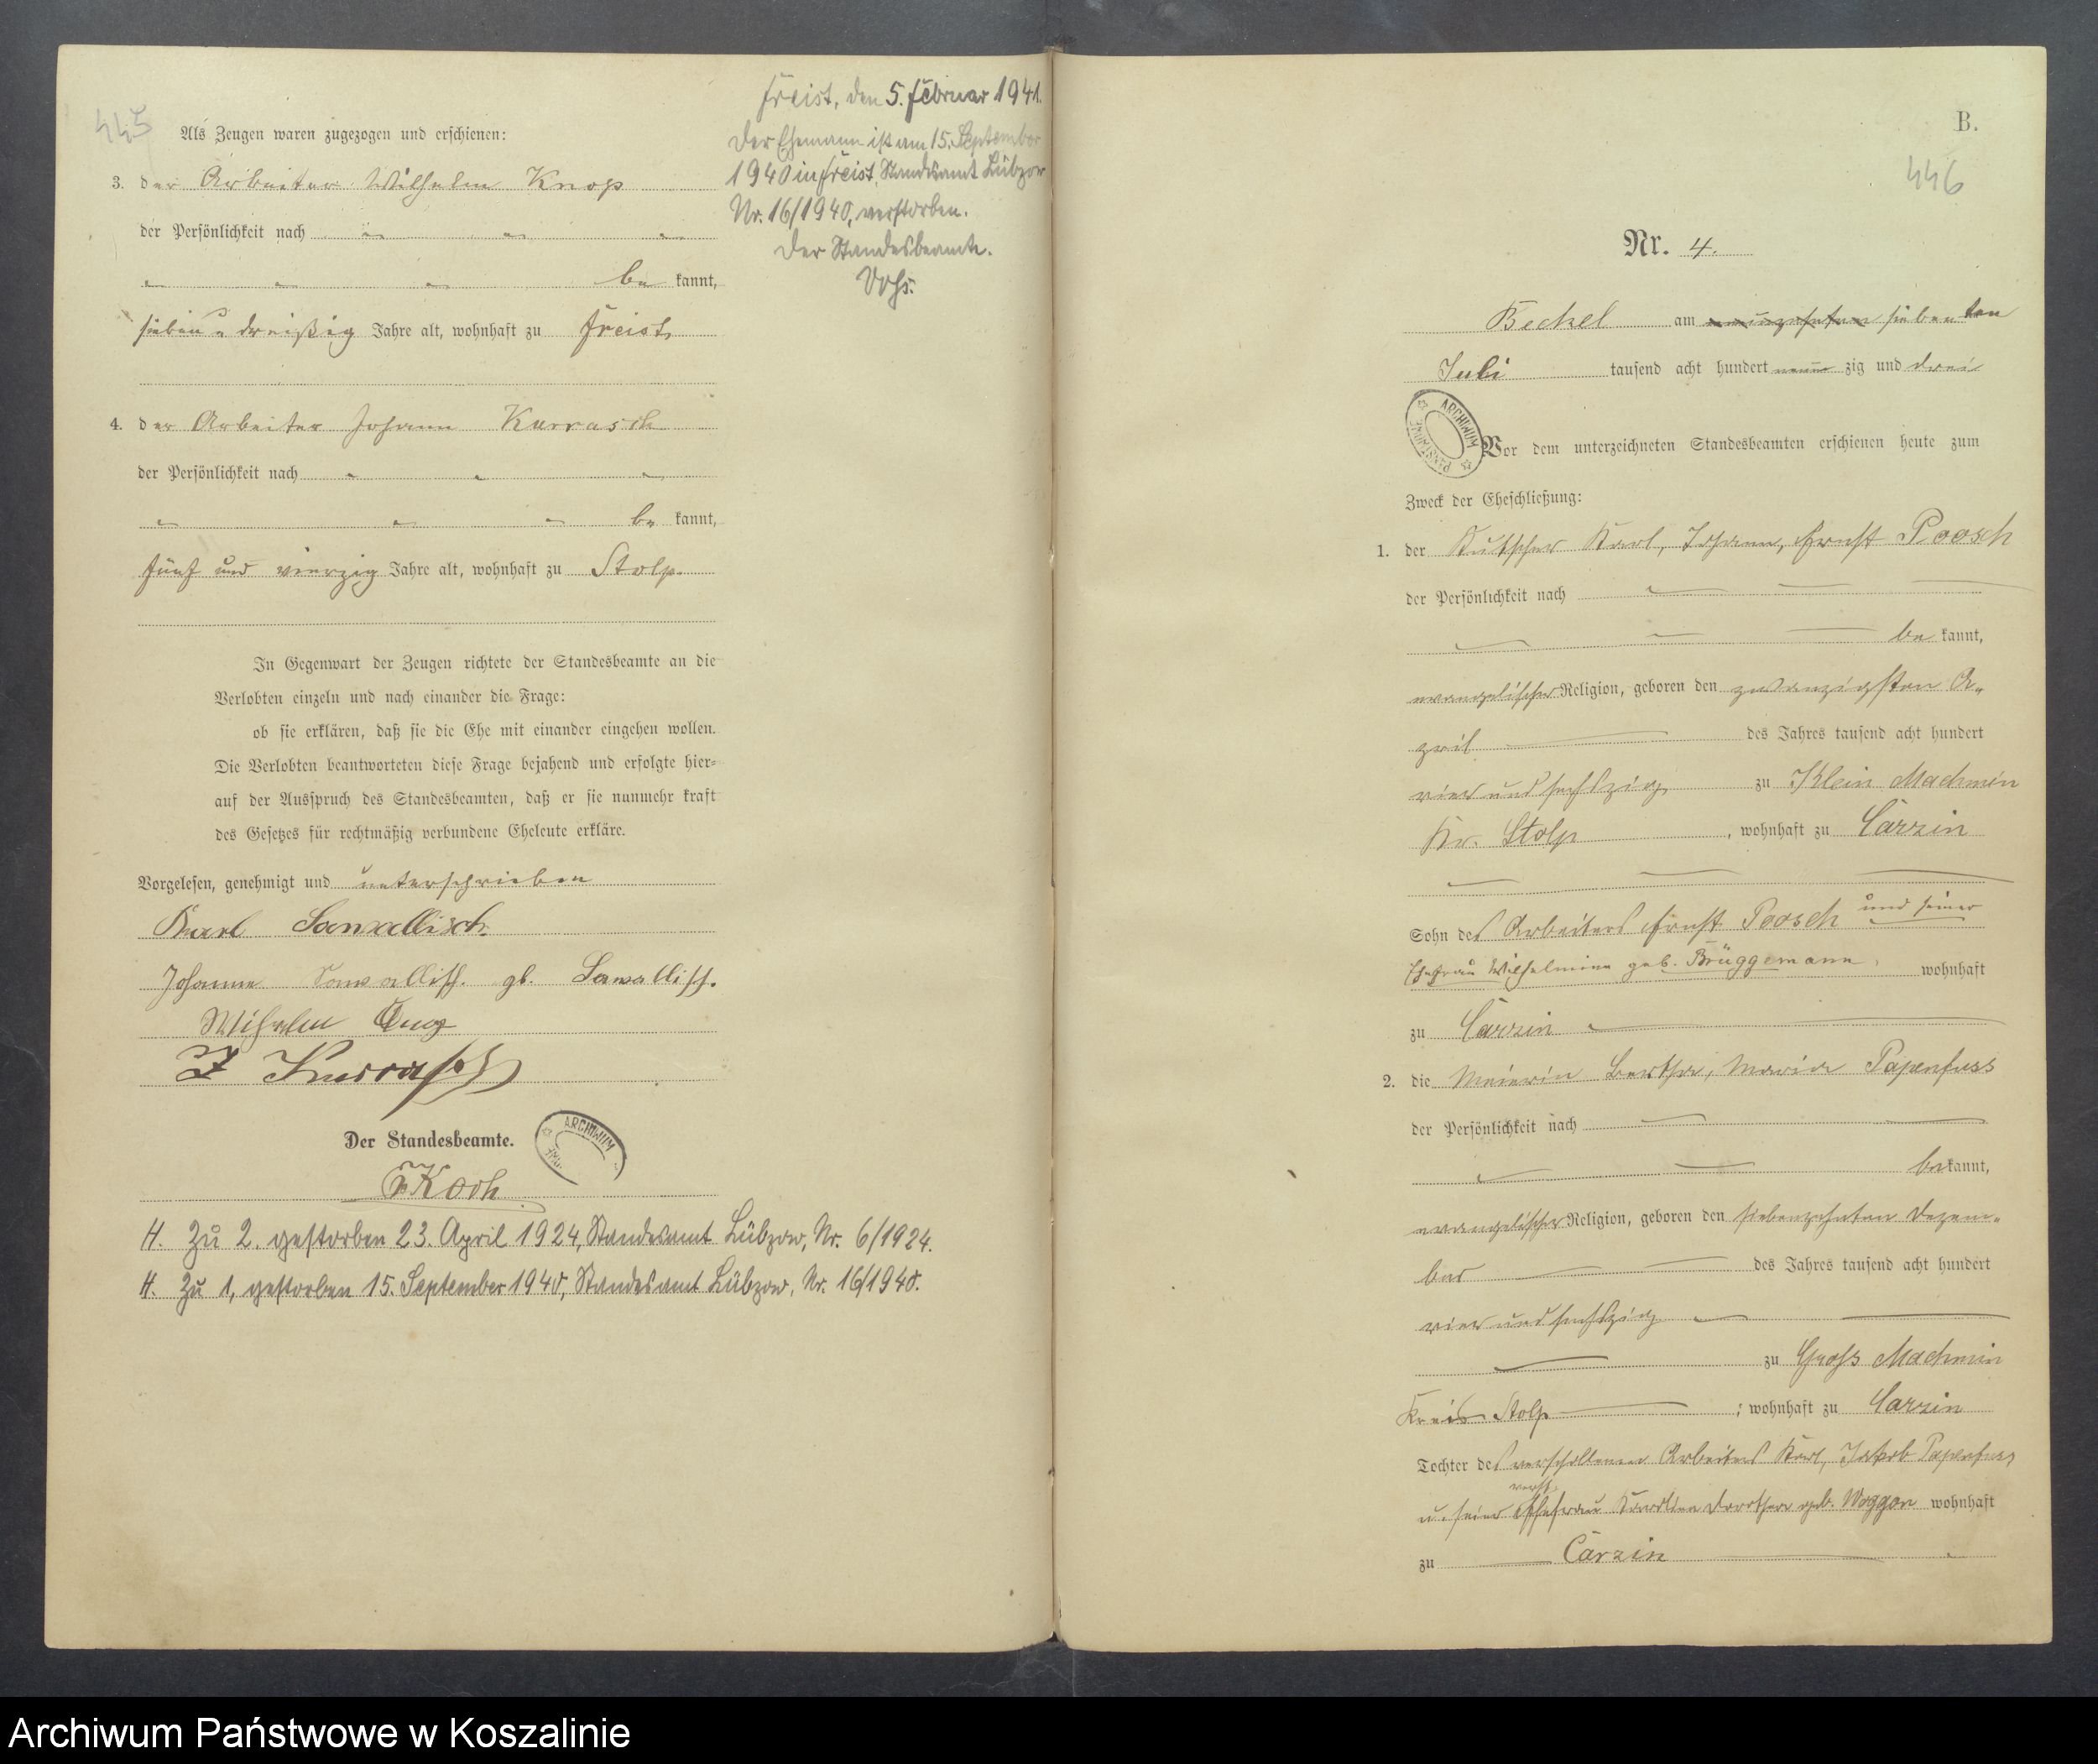 445
Als Zeugen waren zugezogen und erschienen:
3. der Arbeiter Wilhelm Knop
der Persönlichkeit nach
be kannt,
sieben u dreißig Jahre alt, wohnhaft zu Freist
4. der Arbeiter Johann Kurrasch
der Persönlichkeit nach
be kannt,
fünf und vierzig Jahre alt, wohnhaft zu Stolp.
In Gegenwart der Zeugen richtete der Standesbeamte an die
Verlobten einzeln und nach einander die Frage:
ob sie erklären, daß sie die Ehe mit einander eingehen wollen.
Die Verlobten beantworteten diese Frage bejahend und erfolgte hier-
auf der Ausspruch des Standesbeamten, daß er sie nunmehr kraft
des Gesetzes für rechtmäßig verbundene Eheleute erkläre.
Vorgelesen, genehmigt und unterschrieben
Karl Sawallisch
Johanne Sawallisch gb. Sawallisch.
Wilhelm Knop
J Kurrasch
Der Standesbeamte.
Koch
ARCHIWUM
H. Zu 2. gestorben 23. April 1924, Standesamt Lübzow, Nr. 6/1924.
H. Zu 1, gestorben 15. September 1940, Standesamt Lübzow, Nr. 16/1940.
Freist, den 5. Februar 1941.
Der Ehemann ist am 15. September
1940 in Freist, Standesamt Lübzow
Nr. 16/1940, verstorben.
Der Standesbeamte.
B.
446
Nr. 4.
Bechel am neunzehnten siebenten
Juli tausend acht hundert neun zig und drei
ARCHIWUM PAŃSTWOWE
Vor dem unterzeichneten Standesbeamten erschienen heute zum
Zweck der Eheschließung:
1. der Kutscher Karl, Johann, Ernst Poosch
der Persönlichkeit nach
be kannt,
evangelischer Religion, geboren den zwanzigsten A-
pril des Jahres tausend acht hundert
vier und sechszig zu Klein Machmin
Kr. Stolp, wohnhaft zu Carzin
Sohn des Arbeiters Ernst Poosch und seiner
Ehefrau Wilhelmine geb. Brüggemann, wohnhaft
zu Carzin
2. die Meierin Bertha, Marie Papenfuss
der Persönlichkeit nach
be kannt,
evangelischer Religion, geboren den siebenzehnten Dezem-
ber des Jahres tausend acht hundert
vier und sechszig
zu Gross Machmin
Kreis Stolp; wohnhaft zu Carzin
Tochter des verschollenen Arbeiters Karl, Jakob Papenfuss
u. seiner Ehefrau Karoline Dorothea geb. Woggon wohnhaft
zu Carzin
Archiwum Państwowe w Koszalinie